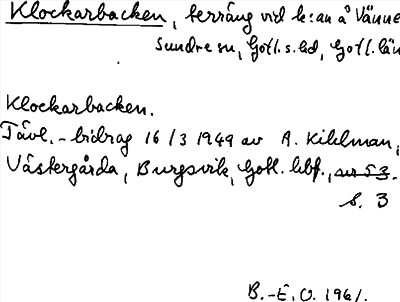 Klockarbacken, terräng vid k:an å Vänne
Sundre sn, Gotl. s. hd, Gotl. län
Klockarbacken.
Tävl.-bidrag 16/3 1949 av A. Kihlman,
Västergårda, Burgsvik, Gotl. hbf.,
s. 3
B.-E. O. 1961.